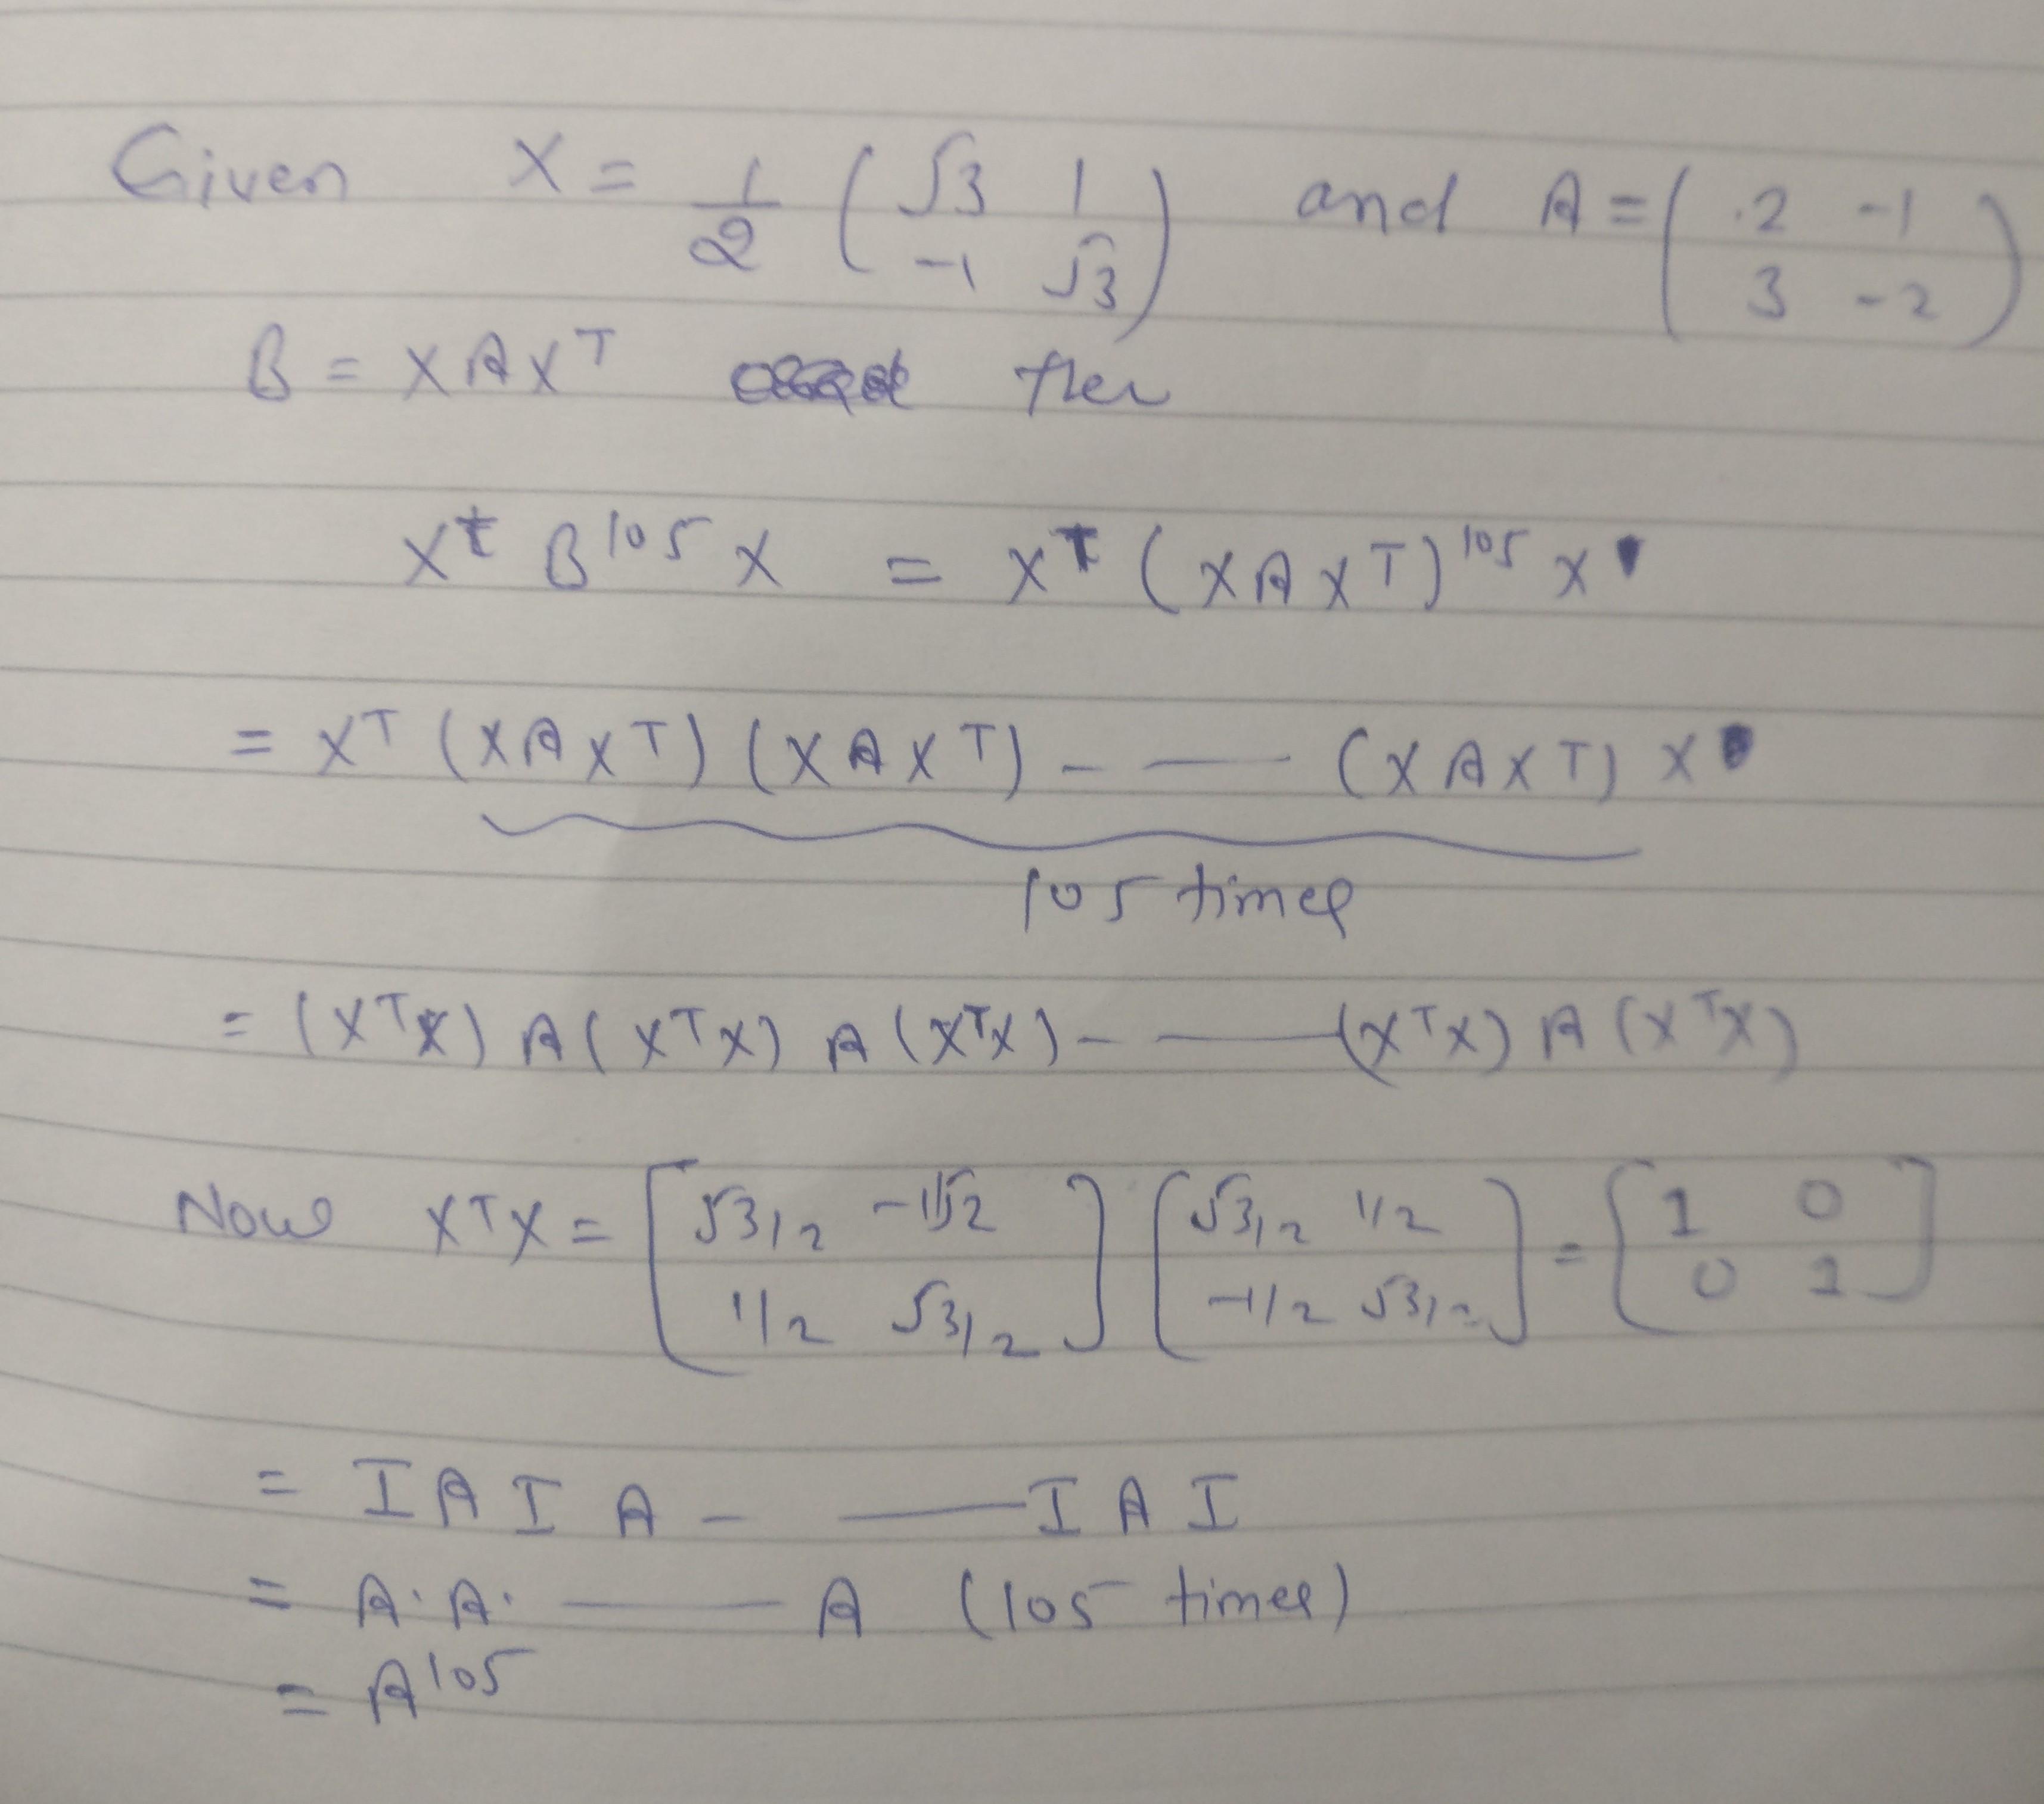 Given X = 1/2 ( √3 1 ; -1 √3 ) and A = ( 2 -1 ; 3 -2 )
B = XAX^T then
X^t B^105 X = X^T (XAX^T)^105 X
= X^T (XAX^T) (XAX^T) - — (XAX^T) X
105 times
= (X^TX) A (X^TX) A (X^TX) - — (X^TX) A (X^TX)
Now X^TX = [ √3/2 -1/2 ; 1/2 √3/2 ] [ √3/2 1/2 ; -1/2 √3/2 ] = [ 1 0 ; 0 1 ]
= I A I A - — I A I
= A·A· — A (105 times)
= A^105